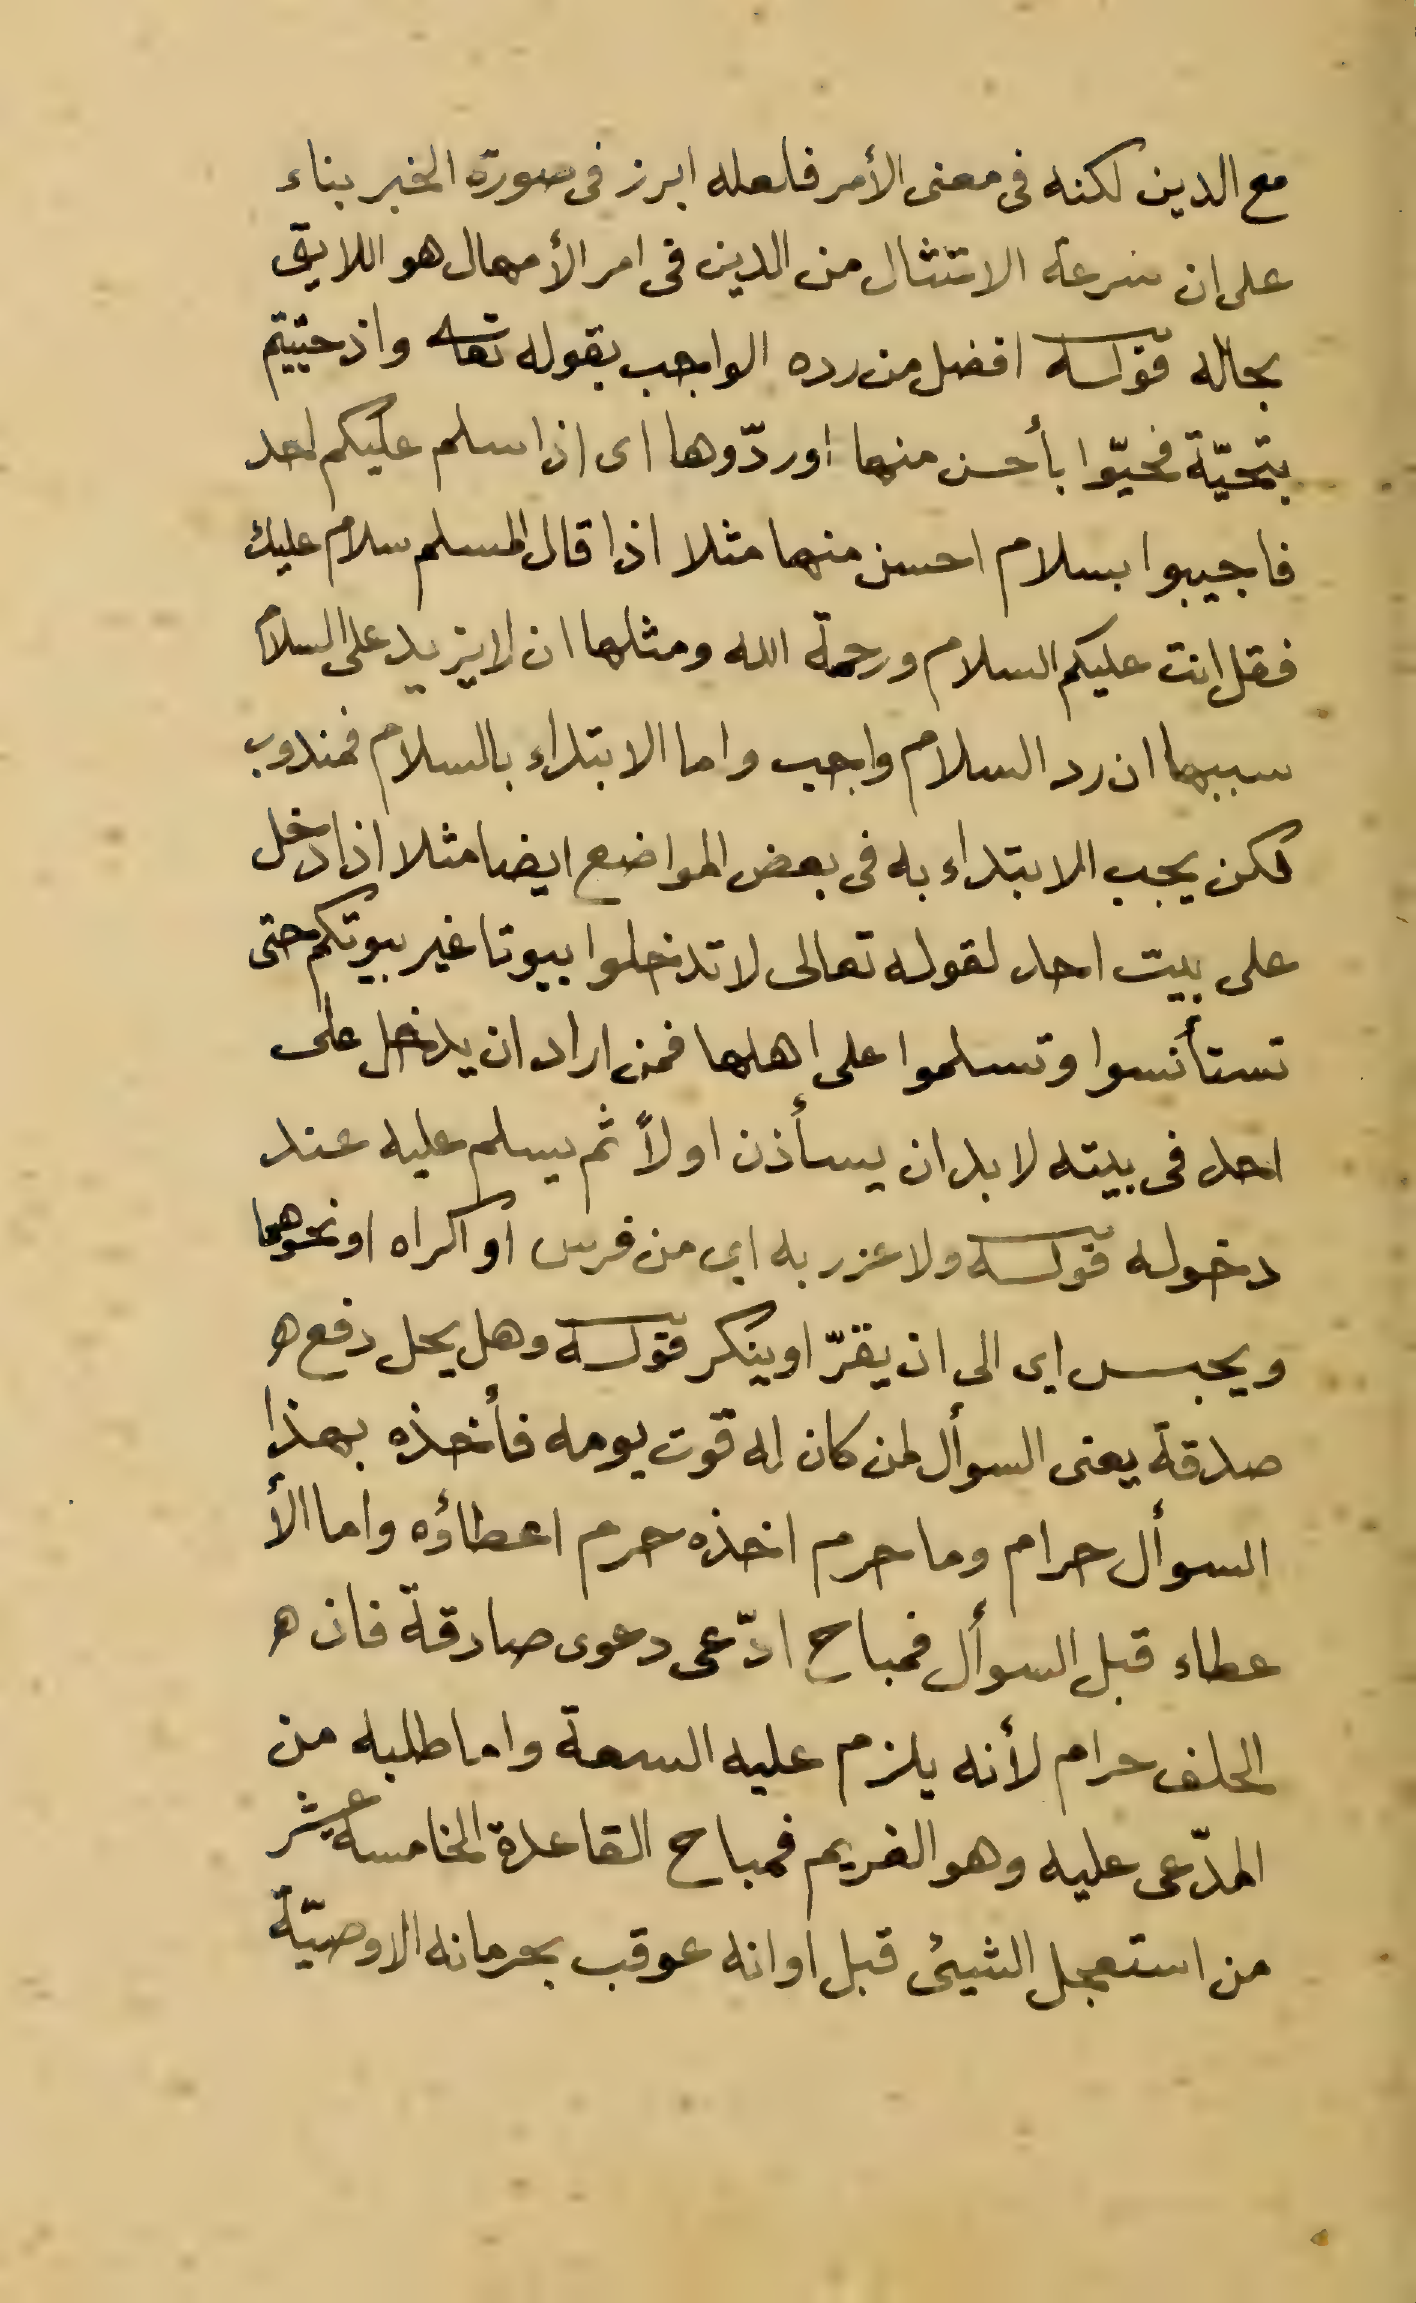 مع الدين لكنه فى معنى الأمر فلعله ابرز فى صورة الخبر بناء
على ان سرعة الامتثال من الدين فى امر الأمهال هو اللايق
بحاله قوله افضل من رده الواجب بقوله تعالى واذ حيّيتم
بتحيّة فحيّوا بأحسن منها او ردّوها اى اذا سلم عليكم احد
فاجيبوا بسلام احسن منها مثلا اذا قال المسلم سلام عليك
فقل انت عليكم السلام ورحمة الله ومثلها ان لا يزيد على السلام
سببها ان رد السلام واجب واما الابتداء بالسلام فمندوب
لكن يجب الابتداء به فى بعض المواضع ايضا مثلا اذا دخل
على بيت احد لقوله تعالى لا تدخلوا بيوتا غير بيوتكم حتى
تستأنسوا وتسلموا على اهلها فمن اراد ان يدخل على
احد فى بيته لا بد ان يسأذن اولاً ثم يسلم عليه عند
دخوله قوله ولا عزر به اى من فرس او اكراه او نحوهما
ويحبس اى الى ان يقرّ او ينكر قوله وهل يحل دفع ه
صدقة يعنى السوأل لمن كان له قوت يومه فأخذه بهذا
السوأل حرام وما حرم اخذه حرم اعطاؤه واما الأ
عطاء قبل السوأل فمباح ادّعى دعوى صادقة فان ه
الحلف حرام لأنه يلزم عليه السعة واما طلبه من
المدّعى عليه وهو الغريم فمباح القاعدة الخامسة عشر
من استعجل الشيئ قبل اوانه عوقب بحرمانه الاوصيّة